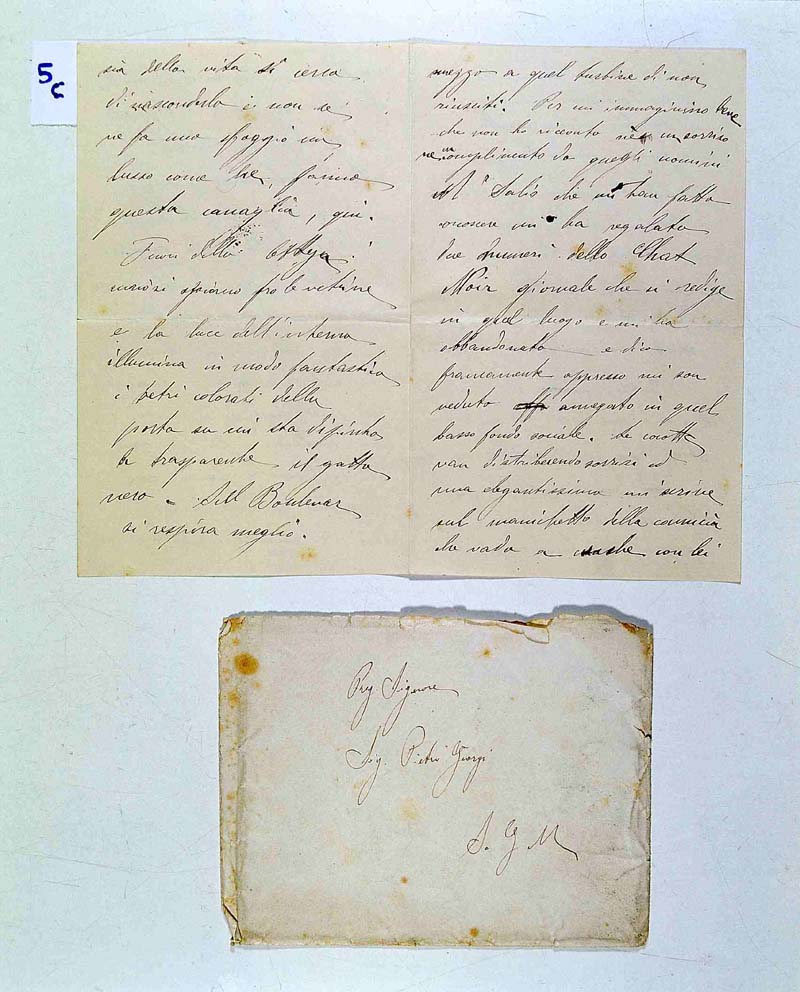 5c
sia della vita si cerca
di nasconderla e non se
ne fa uno sfoggio un
lusso come che, fanno
questa canaglia, qui.
Fuori della
curiosi spiano fra le vetrine
e la luce dell'interno
illumina in modo fantastico
i vetri colorati della
porta su cui sta dipinto
in trasparente il gatto
nero = Sul Boulevar
si respira meglio.
mezzo a quel turbine di non
riusciti. Per cui immaginino bene
che non ho ricevuto nè un sorriso
ne un complimento da quegli uomini
M Salis che mi han fatto
conoscere mi ha regalato
due numeri dello Chat
Noir giornale che si redige
in quel luogo e mi ha
abbandonato e dico
francamente appresso mi son
veduto annegato in quel
basso fondo sociale. Le cocotte
van distribuendo sorrisi ed
una elegantissima mi scrive
sul manichetto della camicia
che vada a con lei
Preg. Signore
Sig. Pietro Giorgi
S. G. M